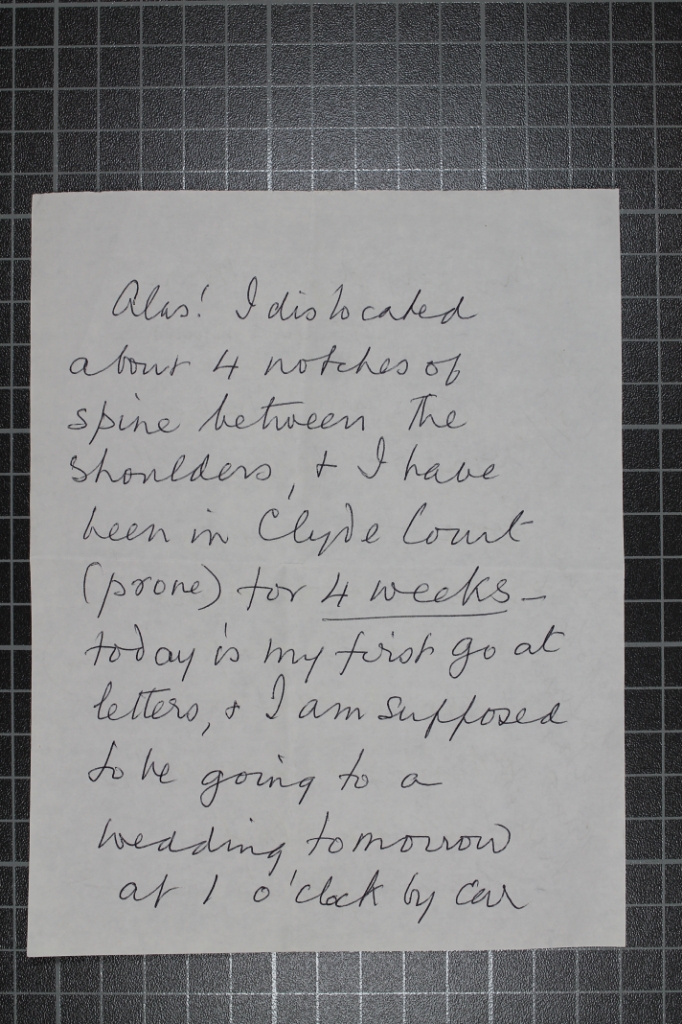 Alas! I dislocated
about 4 notches of
spine between the
shoulders, & I have
been in Clyde Court
(prone) for 4 weeks –
today is my first go at
letters, & I am supposed
to be going to a
wedding tomorrow
at 1 o'clock by car